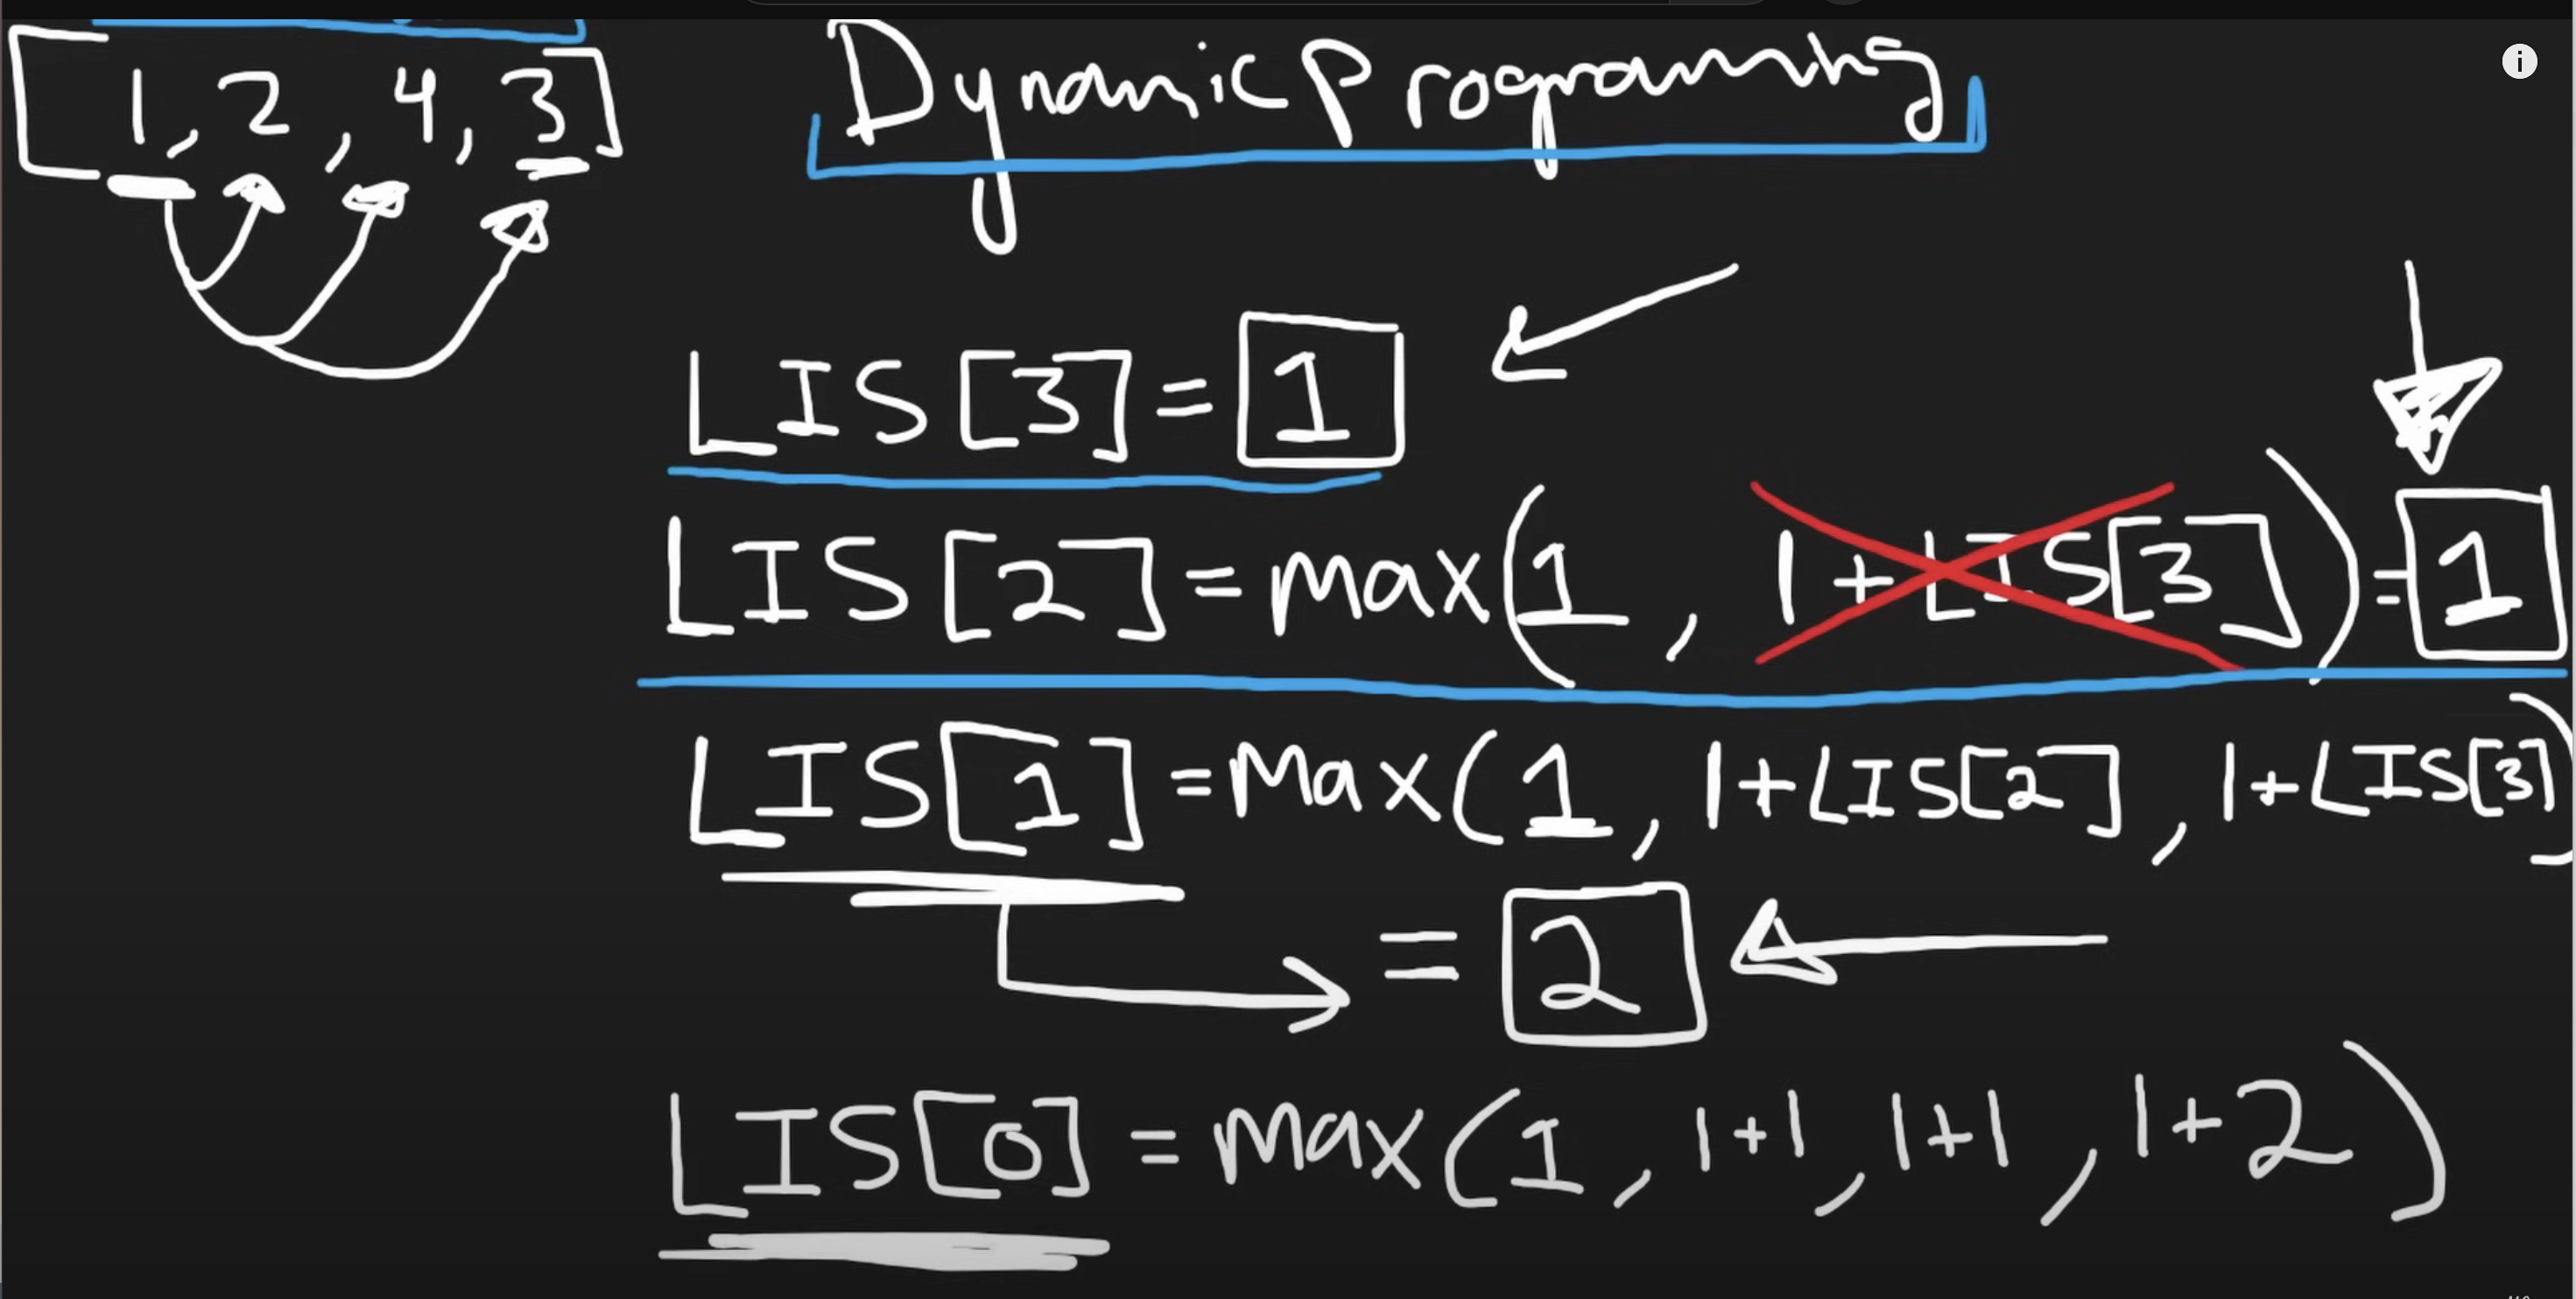 [1, 2, 4, 3]
Dynamic Programming
LIS[3] = 1
LIS[2] = max(1, 1+LIS[3]) = 1
LIS[1] = Max(1, 1+LIS[2], 1+LIS[3])
= 2
LIS[0] = max(1, 1+1, 1+1, 1+2)